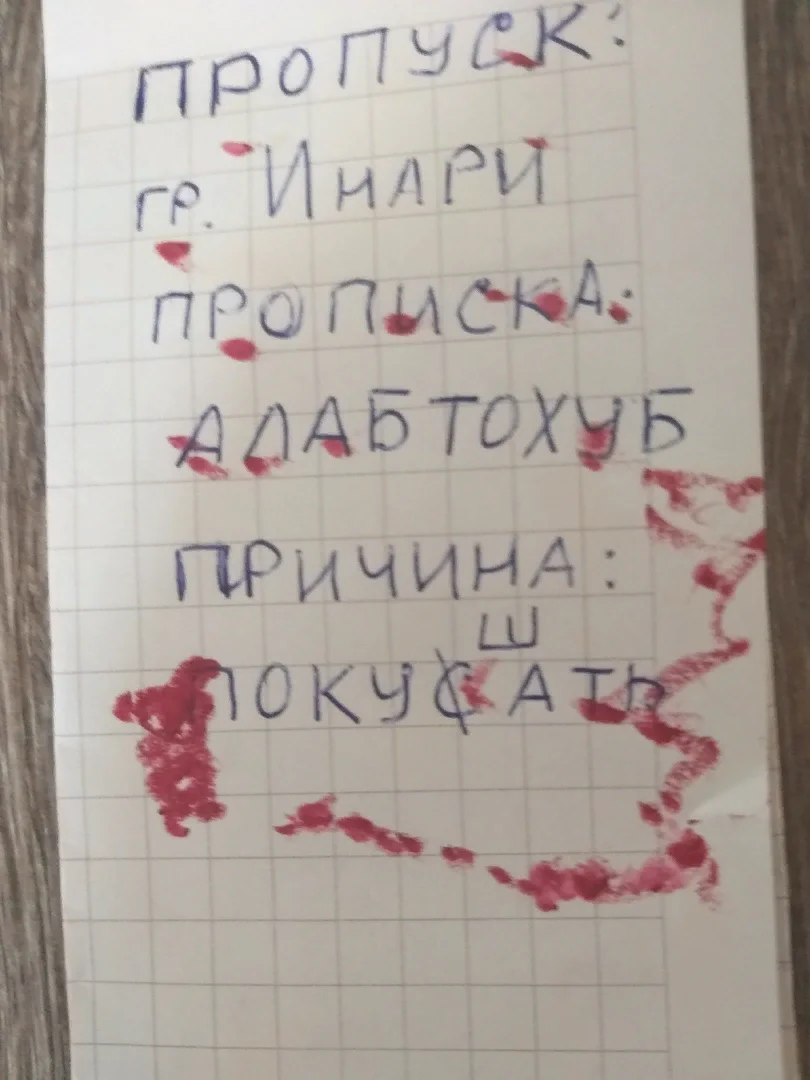 ПРОПУСК:
гр. ИНАРИ
ПРОПИСКА:
АЛАБТОХУБ
ПРИЧИНА:
Ш
ПОКУСАТЬ